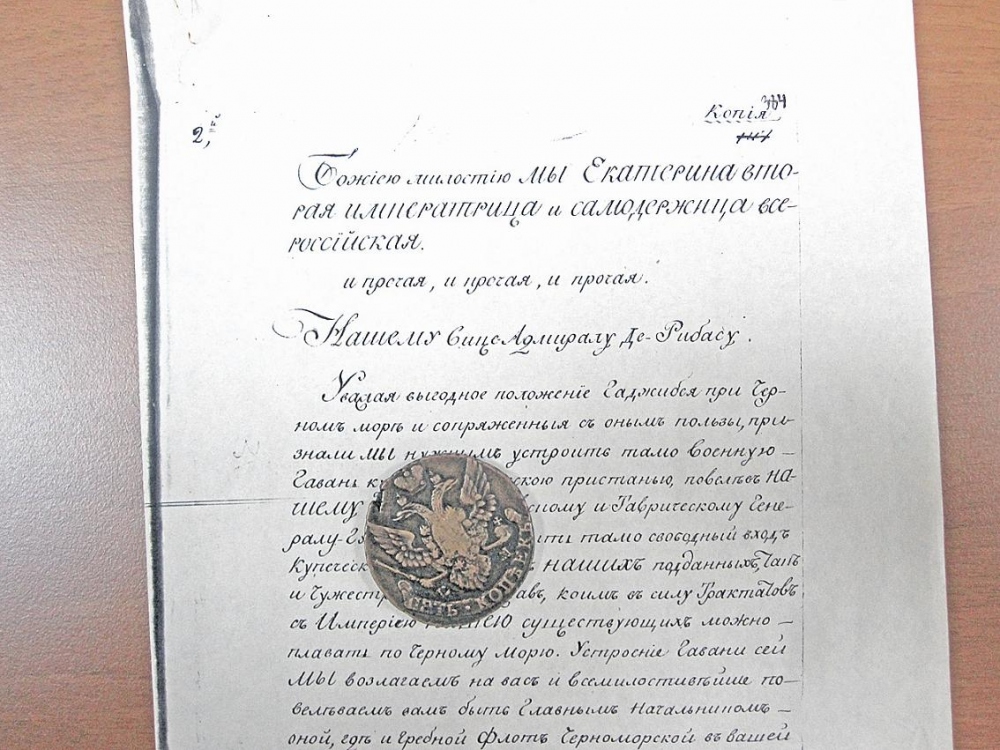 Копія 384
2,
Божіею милостію МЫ Екатерина вто-
рая императрица и самодержица все-
россійская.
и протчая, и протчая, и прочая.
Нашему Вице Адмиралу Де-Рибасу.
Уважая выгодное положеніе Гаджибея при Чер-
номъ морѣ и сопряженныя съ онымъ пользы, при-
знали МЫ нужнымъ устроить тамо военную
Гавань скою пристанью, повелѣвъ НА-
ШЕМУ скому и Таврическому Гене-
ралу ить тамо свободный входъ
Купеческ НАШИХЪ подданныхъ, такъ
и чужестр въ, коимъ въ силу трактатовъ
съ Имперіею НАШЕЮ существующихъ можно
плавать по Черному Морю. Устроеніе Гавани сей
МЫ возлагаемъ на васъ и всемилостивѣйше по-
велѣваемъ вамъ быть Главнымъ Начальникомъ
оной, гдѣ и Гребной Флотъ Черноморской въ вашей
ПЯТЬ КОПѢЕКЪ